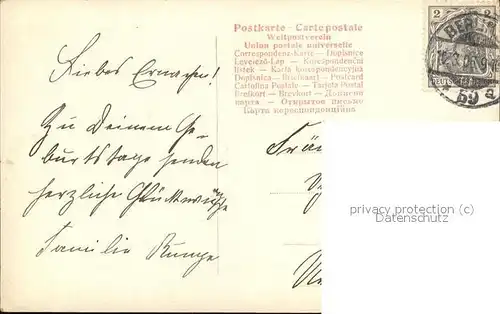 Postkarte - Carte postale
Weltpostverein
Union postale universelle
Correspondenz-Karte — Dopisnice
Levelező-Lap — Korespondenční
lístek — Karta korespondencyjna
Dopisnica — Briefkaart — Postcard
Cartolina Postale — Tarjeta Postal
Brefkort — Brevkort — Дописна
карта — Открытое письмо
Карта корреспонденціина
2 2
BERLIN
59 a
Liebes Ernachen!
Zu Deinem Ge-
burtstage senden
herzliche Glückwünsche
Familie Runge
Frä
privacy protection (c)
Datenschutz